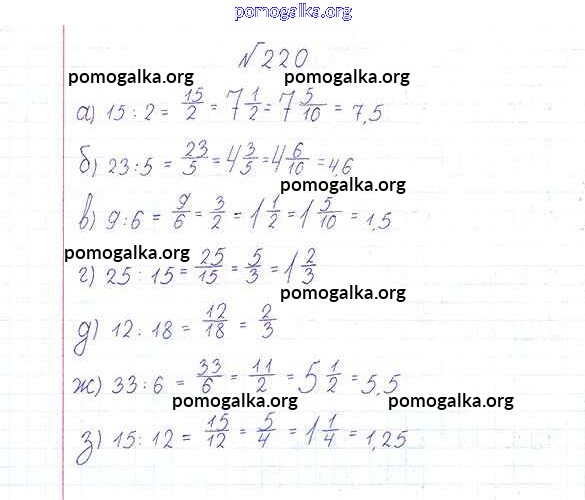 pomogalka.org
№220
pomogalka.org pomogalka.org
а) 15 : 2 = 15/2 = 7 1/2 = 7 5/10 = 7,5
б) 23 : 5 = 23/5 = 4 3/5 = 4 6/10 = 4,6
pomogalka.org
в) 9 : 6 = 9/6 = 3/2 = 1 1/2 = 1 5/10 = 1,5
pomogalka.org
г) 25 : 15 = 25/15 = 5/3 = 1 2/3
pomogalka.org
д) 12 : 18 = 12/18 = 2/3
ж) 33 : 6 = 33/6 = 11/2 = 5 1/2 = 5,5
pomogalka.org pomogalka.org
з) 15 : 12 = 15/12 = 5/4 = 1 1/4 = 1,25